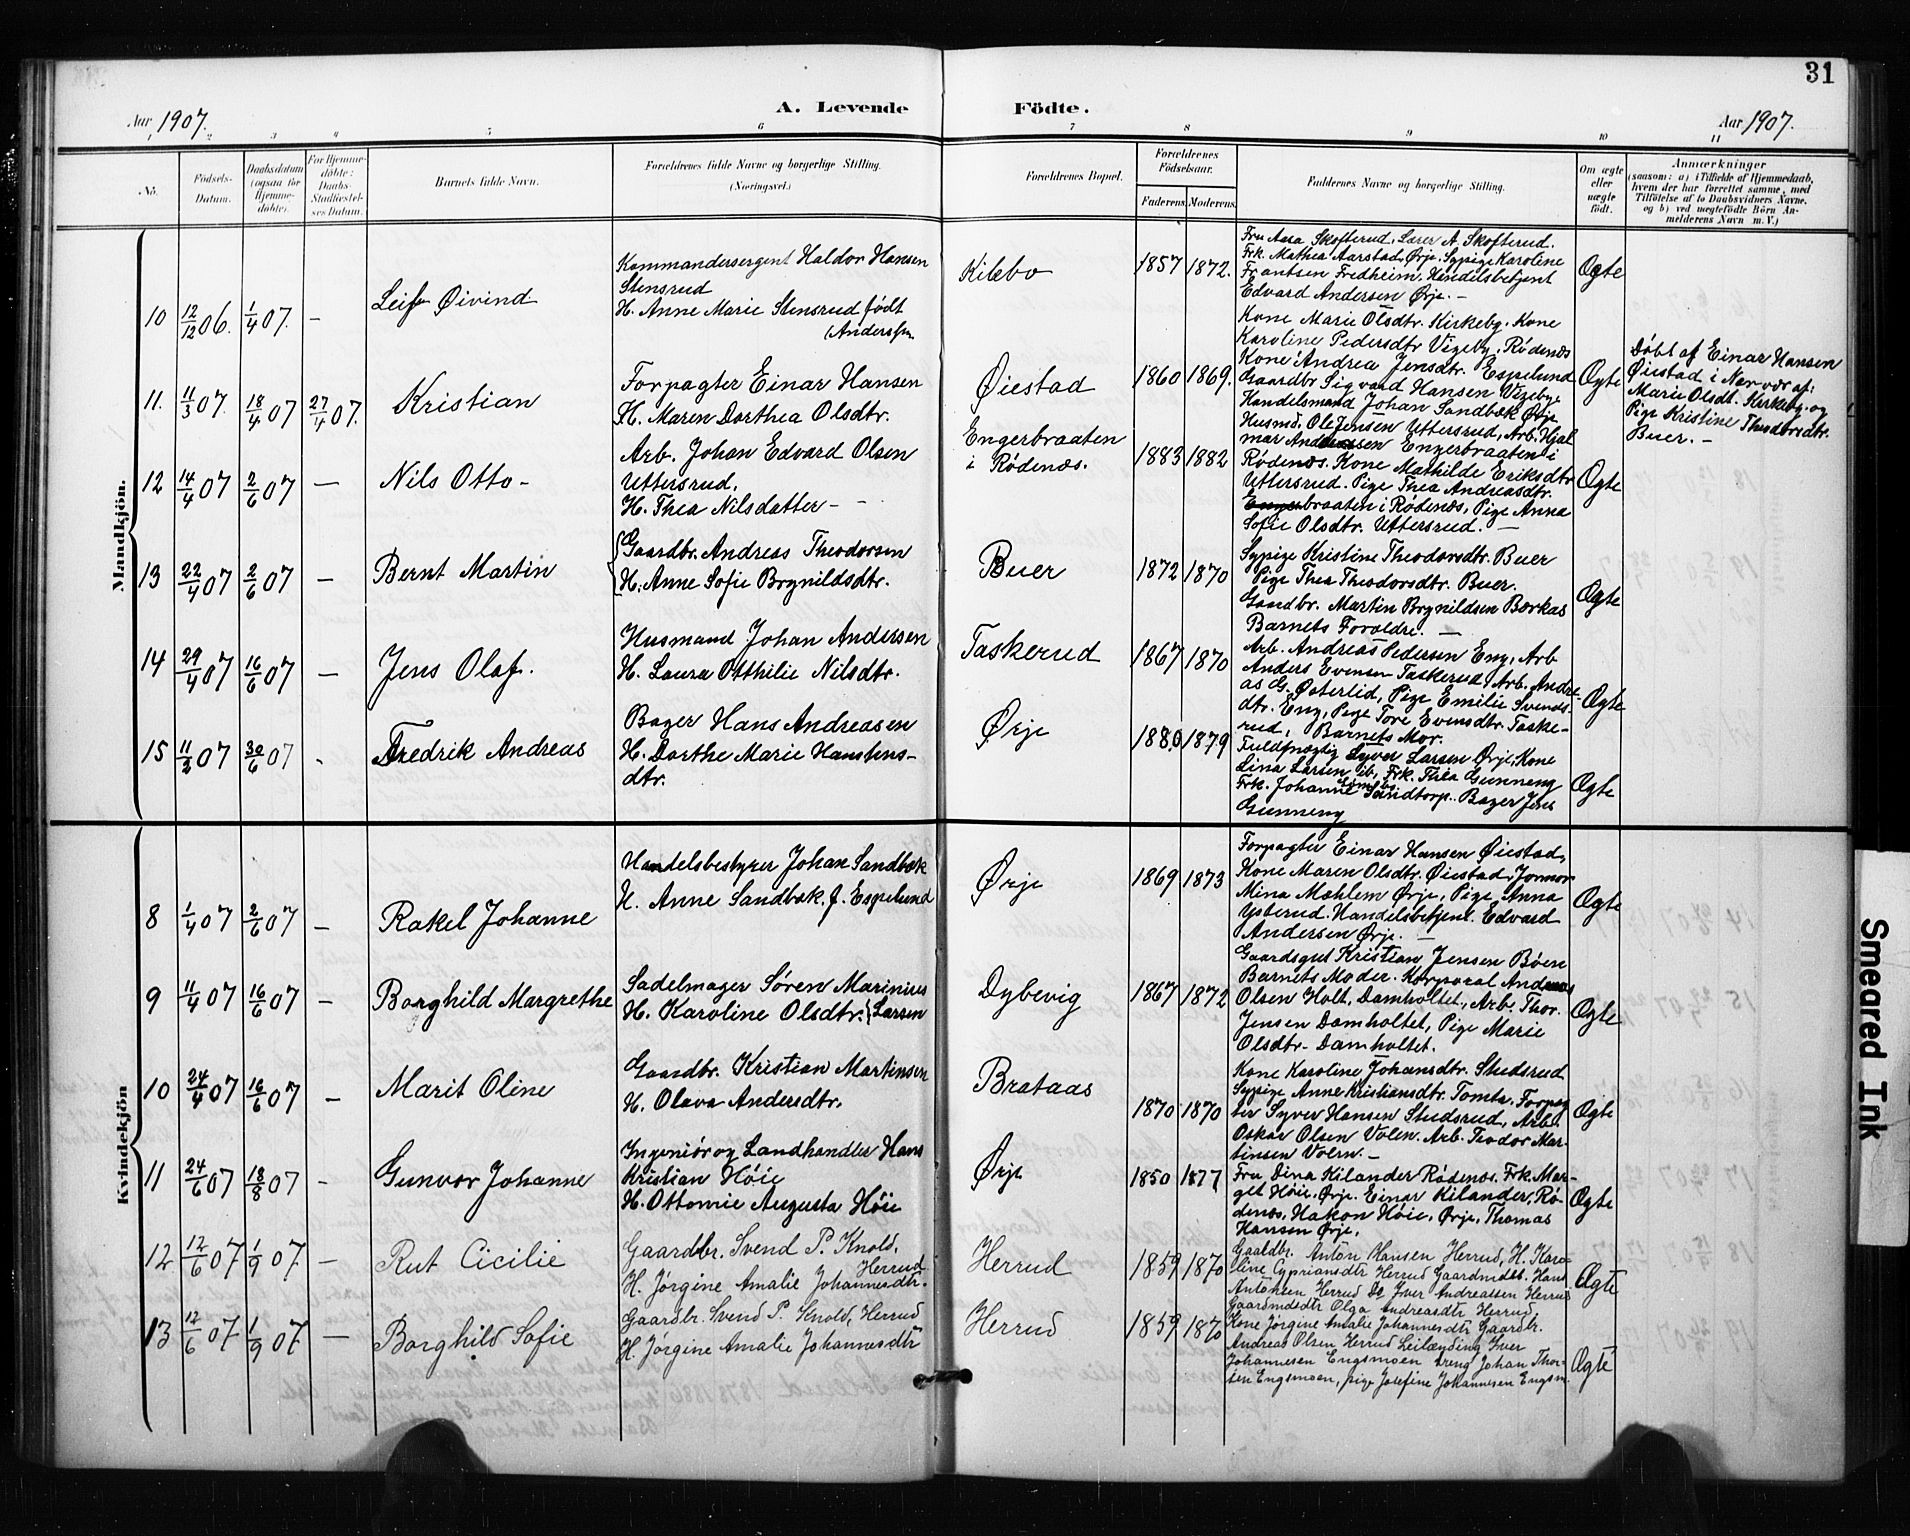 31
Aar 1907.
A. Levende
Födte.
Aar 1907.
1 2 3 4 5 6 7 8 9 10 11
No.
Födsels-
Datum.
Daabsdatum
(ogsaa for
Hjemme-
döbte).
For Hjemme-
döbte:
Daabs-
Stadfæstel-
ses Datum.
Barnets fulde Navn.
Forældrenes fulde Navne og borgerlige Stilling.
(Næringsvei.)
Forældrenes Bopæl.
Forældrenes
Födselsaar.
Faderens.
Moderens.
Faddernes Navne og borgerlige Stilling.
Om ægte
eller
uægte
födt.
Anmærkninger
(saasom: a) i Tilfælde af Hjemmedaab,
hvem der har forrettet samme, med
Tilföielse af to Daabsvidners Navne.
og b) ved uægtefödte Börn An-
melderens Navn m. V.)
Mandkjön.
10 12/12 06. 1/4 07. –
Leif Øivind
Kommandersergent Haldor Hansen
Stensrud
H. Anne Marie Stensrud født
(Andersen
Kilebo
1857 1872.
Fru Aasa Skofterud, Lærer A. Skofterud.
Frk. Mathea Aarstad, Ørje, Sypige Karoline
Frantsen Fredheim, Handelsbetjent
Edvard Andersen Ørje. –
Ægte
11. 11/3 07. 18/4 07 27/4 07.
Kristian
Forpagter Einar Hansen
H. Maren Dorthea Olsdtr.
Øiestad
1860 1869.
Kone Marie Olsdtr. Kirkeby. Kone
Karoline Pedersdtr Vizeby, Rødenæs
Kone Andrea Jensdtr. Espelund
Gaardbr Sigvard Hansen Vizeby
Handelsmand Johan Sandbæk Ørje
Ægte
Døbt af Einar Hansen
Øiestad i Nærvær af:
Marie Olsdt. Kirkeby og
Pige Kristine Theodorsdtr.
Buer. –
12 14/4 07 2/6 07 –
Nils Otto –
Arb. Johan Edvard Olsen
Uttersrud.
H. Thea Nilsdatter –
Engerbraaten
i Rødenæs.
1883 1882
Husmd. Ole Jensen Uttersrud, Arb. Hjal
mar Andreassen Engerbraaten i
Rødenæs. Kone Mathilde Eriksdtr
Uttersrud. Pige Thea Andreasdtr.
Engerbraaten i Rødenæs, Pige Anna
Sofie Olsdtr. Uttersrud. –
Ægte
13 22/4 07 2/6 07 –
Bernt Martin
Gaardbr. Andreas Theodorsen
H. Anne Sofie Brynildsdtr.
Buer
1872 1870
Sypige Kristine Theodorsdtr. Buer
Pige Thea Theodorsdtr. Buer.
Gaardbr. Martin Brynildsen Børkas
Barnets Forældre. –
Ægte
14 29/4 07 16/6 07 –
Jens Olaf.
Husmand Johan Andersen
H. Laura Otthilie Nilsdtr.
Taskerud
1867 1870
Arb. Andreas Pedersen Eng, Arb
Anders Evensen Taskerud, Arb. Andre
as G. Østerlid, Pige Emilie Svends-
dtr. Eng, Pige Tove Evensdtr. Taske-
rud, Barnets Mor.
Ægte
15 11/2 07 30/6 07 .
Fredrik Andreas
Bager Hans Andreasen
H. Dorthe Marie Hanstens-
dtr.
Ørje
1880 1879
Fuldfmægtig Syver Larsen Ørje, Kone
Lina Larsen ib, Frk. Thea Gunneng
Frk. Johanne Sandtorp. Bager Jens
Gunneng
Ægte
Kvindekjön
8 1/4 07 2/6 07 –
Rakel Johanne
Handelsbestyrer Johan Sandbæk
H. Anne Sandbæk f. Espelund
Ørje
1869 1873
Forpagter Einar Hansen Øiestad,
Kone Maren Olsdtr. Øiestad, Jormor
Mina Mahlem Ørje, Pige Anna
Ysterud. Handelsbetjent Edvard
Andersen Ørje. –
Ægte
9 11/4 07 16/6 07 –
Borghild Margrethe
Sadelmager Søren Marinius
H. Karoline Olsdtr. (Larsen
Dybevig
1867 1872
Gaardsgut Kristian Jensen Bøen
Barnets Moder. Korporal Andreas
Olsen Holt, Damholtet, Arb. Thor.
Jensen Damholtet, Pige Marie
Olsdtr. Damholtet.
Ægte
10 24/4 07 16/6 07 –
Marit Oline
Gaardbr. Kristian Martinsen
H. Olava Andersdtr.
Brataas
1870 1870
Kone Karoline Johansdtr. Studsrud
Sypige Anne Kristiansdtr. Tomta, Forpag
ter Syver Hansen Studsrud, Arb.
Oskar Olsen Volen. Arb. Teodor Mar-
tinsen Volen. –
Ægte
11 24/6 07 18/8 07 –
Gunvor Johanne
Ingeniør og Landhandler Hans
Kristian Høie
H. Ottomie Augusta Høie
Ørje
1850 1877
Fru Dina Kilander Rødenæs. Frk. Mar-
git Høie, Ørje. Einar Kilander, Rø-
denæs, Hakon Høie, Ørje, Thomas
Hansen Ørje.
Ægte
12 12/6 07 1/9 07. –
Rut Cicilie
Gaardbr. Svend P. Knold,
Herrud
H. Jørgine Amalie Johannesdtr.
Herrud
1859 1870
Gaardbr. Anton Hansen Herrud, H. Karo-
line Cypriansdtr Herrud Gaardmdsb. Hans
Antonsen Herrud Do Iver Andreassen Herrud
Gaardmdsdtr Olga Andreasdtr Herrud
Ægte
13 12/6 07. 1/9 07. –
Borghild Sofie
Gaardbr. Svend P. Knold, Herrud
H. Jørgine Amalie Johannesdtr
Herrud
1859 1870
Kone Jørgine Amalie Johannesdtr Gaardbr.
Andreas Olsen Herrud Leilænding Iver
Johannesen Engsmoen dreng Johan Thor-
sten Engsmoen, pige Josefine Johannesen Engsm.
Ægte
Smeared Ink